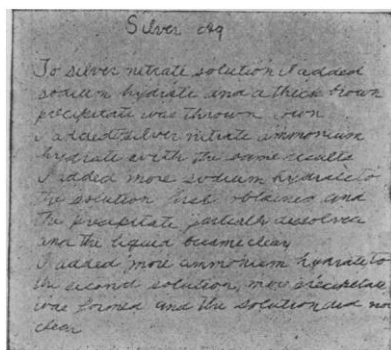 Silver Ag
To silver nitrate solution I added
sodium hydrate and a thick brown
precipitate was thrown own
I added silver nitrate ammonium
hydrate with the same results
I added more sodium hydrate to
the solution first obtained and
the precipitate partially dissolved
and the liquid became clear
I added more ammonium hydrate to
the second solution, more precipitate
was formed and the solution did no
clear